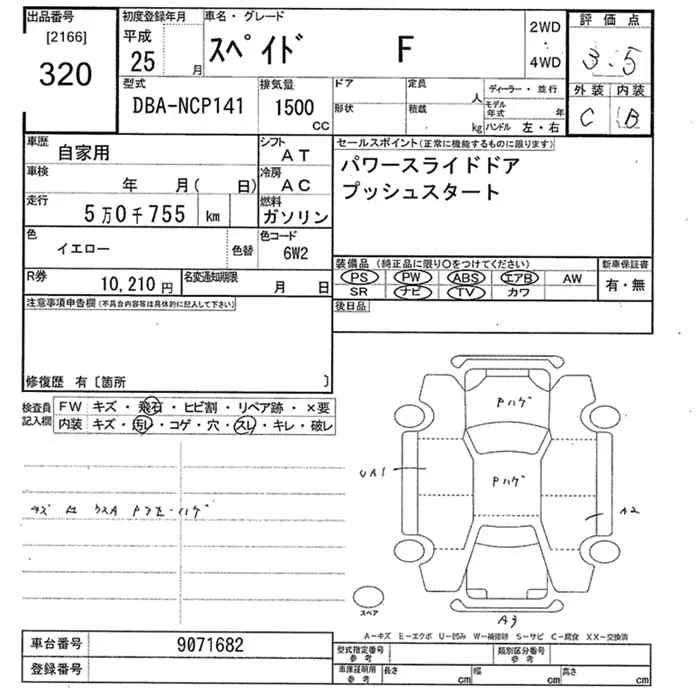 出品番号
[2166]
320
初度登録年月
平成
25 月
車名・グレード
スペイド F
2WD
・
4WD
評価点
3.5
外装 内装
C B
型式
DBA-NCP141
排気量
1500
CC
ドア
形状
定員
人
積載
kg
ディーラー・並行
モデル年式 年
ハンドル 左・右
車歴
自家用
シフト
AT
車検
年 月( 日)
冷房
AC
走行
5万0千755 km
燃料
ガソリン
色
イエロー
色替
色コード
6W2
R券
10,210円
名変通知期限
月 日
セールスポイント(正常に機能するものに限ります)
パワースライドドア
プッシュスタート
装備品(純正品に限り○をつけてください)
PS PW ABS エアB AW
SR ナビ TV カワ
新車保証書
有・無
後日品
注意事項申告欄(不具合内容等は具体的に記入して下さい)
修復歴 有〔箇所 〕
検査員記入欄
FW キズ・飛石・ヒビ割・リペア跡・×要
内装 キズ・汚レ・コゲ・穴・スレ・キレ・破レ
Pハゲ
UA1
Pハゲ
A2
A3
スペア
A-キズ E-エクボ U-凹み W-補修跡 S-サビ C-腐食 XX-交換済
車台番号 9071682
登録番号
型式指定番号
参考
類別区分番号
参考
車庫証明用
参考
長さ cm
幅 cm
高さ cm